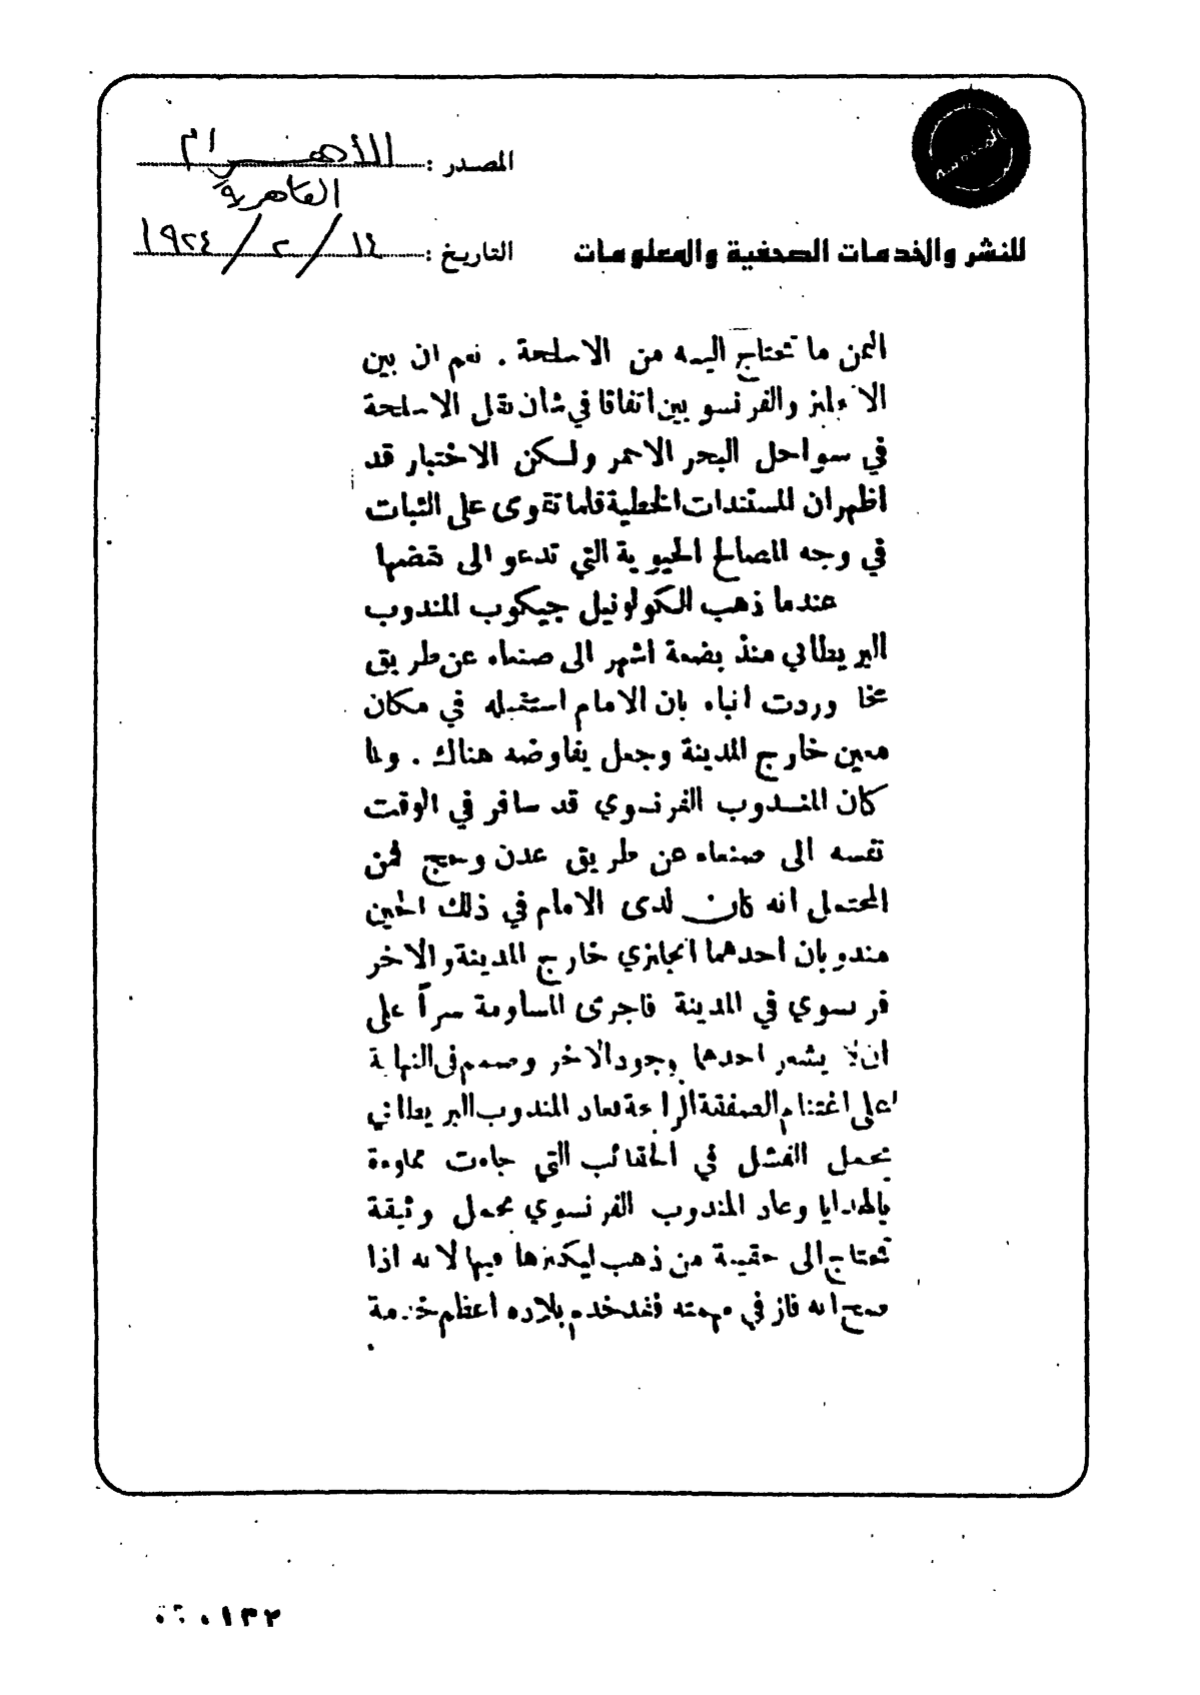 المصدر : الأهرام
القاهرية
للنشر والخدمات الصحفية والمعلومات
التاريخ : ١٤ / ٢ / ١٩٢٤
اليمن ما تحتاج اليه من الاسلحة . نعم ان بين
الانجليز والفرنسو بين اتفاقا في شان نقل الاسلحة
في سواحل البحر الاحمر ولكن الاختبار قد
اظهر ان المستندات الخطية قلما تقوى على الثبات
في وجه المصالح الحيوية التي تدعو الى نقضها
عندما ذهب الكولونيل جيكوب المندوب
البريطاني منذ بضعة اشهر الى صنعاء عن طريق
مخا وردت انباء بان الامام استقبله في مكان
معين خارج المدينة وجعل يفاوضه هناك . ولما
كان المندوب الفرنسوي قد سافر في الوقت
نفسه الى صنعاء عن طريق عدن ولحج فمن
المحتمل انه كان لدى الامام في ذلك الحين
مندوبان احدهما انجليزي خارج المدينة والاخر
فرنسوي في المدينة فاجرى المساومة سراً على
ان لا يشعر احدهما بوجود الاخر وصمم في النهاية
على اغتنام الصفقة الرابحة فعاد المندوب البريطاني
يحمل الفشل في الحقائب التي جاءت مملوءة
بالهدايا وعاد المندوب الفرنسوي يحمل وثيقة
تحتاج الى حقيبة من ذهب ليكنزها فيها لانه اذا
صح انه فاز في مهمته فقد خدم بلاده اعظم خدمة